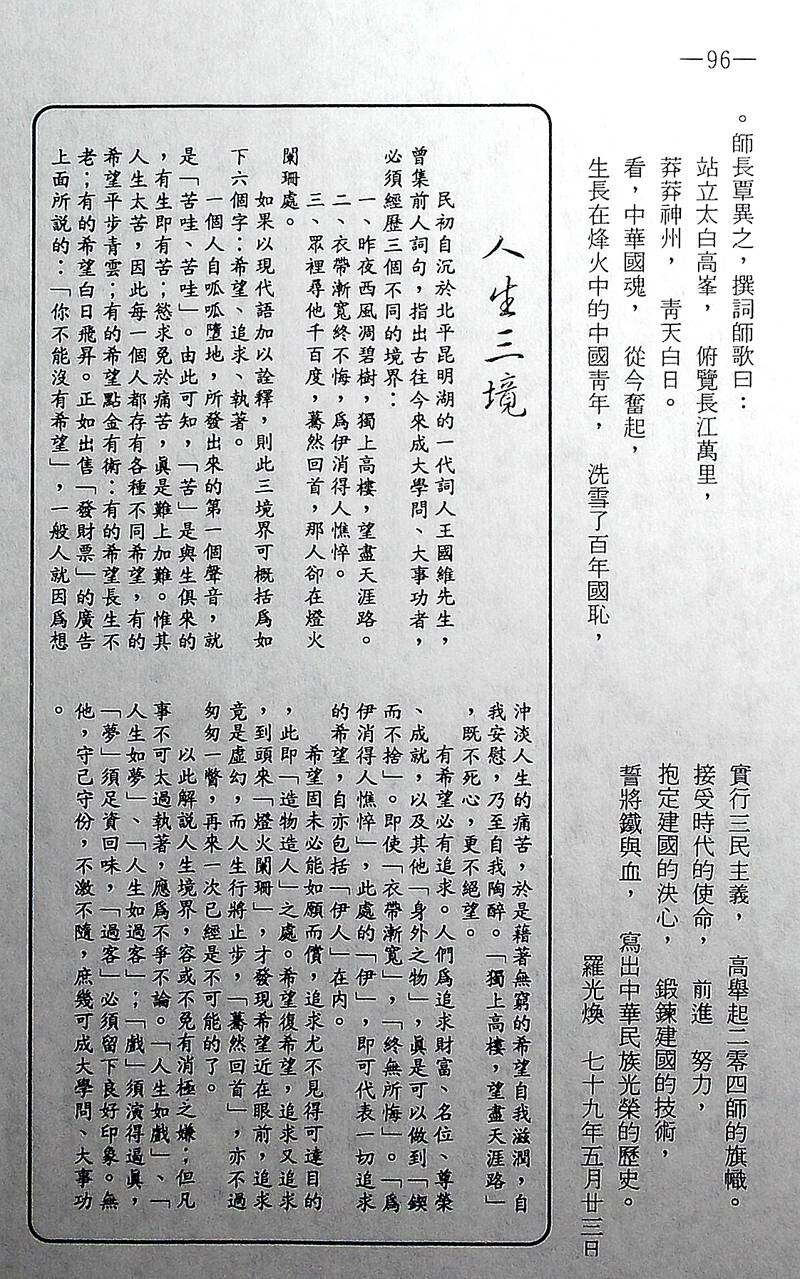 —96—
。師長覃異之，撰詞師歌曰：
站立太白高峯，　俯覽長江萬里，
莽莽神州，　靑天白日。
看，中華國魂，　從今奮起，
生長在烽火中的中國靑年，　洗雪了百年國恥，
實行三民主義，　高舉起二零四師的旗幟。
接受時代的使命，　前進　努力，
抱定建國的決心，　鍛鍊建國的技術，
誓將鐵與血，　寫出中華民族光榮的歷史。
羅光煥　七十九年五月廿三日
人生三境
民初自沉於北平昆明湖的一代詞人王國維先生，
曾集前人詞句，指出古往今來成大學問、大事功者，
必須經歷三個不同的境界：
一、昨夜西風凋碧樹，獨上高樓，望盡天涯路。
二、衣帶漸寬終不悔，爲伊消得人憔悴。
三、眾裡尋他千百度，驀然回首，那人卻在燈火
闌珊處。
如果以現代語加以詮釋，則此三境界可概括爲如
下六個字：希望、追求、執著。
一個人自呱呱墮地，所發出來的第一個聲音，就
是「苦哇、苦哇」。由此可知，「苦」是與生俱來的
，有生即有苦；慾求免於痛苦，眞是難上加難。惟其
人生太苦，因此每一個人都存有各種不同希望，有的
希望平步青雲；有的希望點金有術：有的希望長生不
老；有的希望白日飛昇。正如出售「發財票」的廣告
上面所說的：「你不能沒有希望」，一般人就因爲想
沖淡人生的痛苦，於是藉著無窮的希望自我滋潤，自
我安慰，乃至自我陶醉。「獨上高樓，望盡天涯路」
，既不死心，更不絕望。
有希望必有追求。人們爲追求財富、名位、尊榮
、成就，以及其他「身外之物」，眞是可以做到「鍥
而不捨」。即使「衣帶漸寬」，「終無所悔」。「爲
伊消得人憔悴」，此處的「伊」，即可代表一切追求
的希望，自亦包括「伊人」在內。
希望固未必能如願而償，追求尤不見得可達目的
，此即「造物造人」之處。希望復希望，追求又追求
，到頭來「燈火闌珊」，才發現希望近在眼前，追求
竟是虛幻，而人生行將止步，「驀然回首」，亦不過
匆匆一瞥，再來一次已經是不可能的了。
以此解說人生境界，容或不免有消極之嫌；但凡
事不可太過執著，應爲不爭不論。「人生如戲」、「
人生如夢」、「人生如過客」；「戲」須演得逼眞，
「夢」須足資回味，「過客」必須留下良好印象。無
他，守己守份，不激不隨，庶幾可成大學問、大事功
。